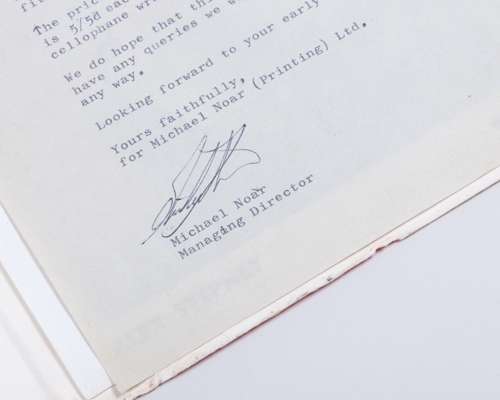 The pric
is 5/5d eac
cellophane wr
We do hope that thi
have any queries we w
any way.
Looking forward to your early
Yours faithfully,
for Michael Noar (Printing) Ltd.
Michael Noar
Managing Director